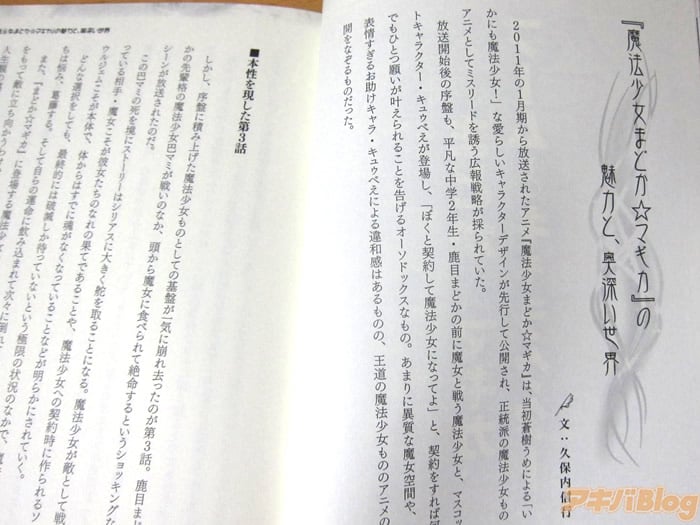 『魔法少女まどか☆マギカ』の
魅力と、奥深い世界
文：久保内信行
2011年の1月期から放送されたアニメ『魔法少女まどか☆マギカ』は、当初蒼樹うめによる「い
かにも魔法少女！」な愛らしいキャラクターデザインが先行して公開され、正統派の魔法少女もの
アニメとしてミスリードを誘う広報戦略が採られていた。
放送開始後の序盤も、平凡な中学2年生・鹿目まどかの前に魔女と戦う魔法少女と、マスコッ
トキャラクター・キュゥべえが登場し、「ぼくと契約して魔法少女になってよ」と、契約をすれば何
でもひとつ願いが叶えられることを告げるオーソドックスなもの。あまりに異質な魔女空間や、
表情すぎるお助けキャラ・キュゥべえによる違和感はあるものの、王道の魔法少女もののアニメの
開をなぞるものだった。
■本性を現した第3話
しかし、序盤に積み上げた魔法少女ものとしての基盤が一気に崩れ去ったのが第3話。鹿目ま
かの先輩格の魔法少女巴マミが戦いのなか、頭から魔女に食べられて絶命するというショッキングな
シーンが放送されたのだ。
この巴マミの死を境にストーリーはシリアスに大きく舵を取ることになる。魔法少女が敵として戦
っている相手・魔女こそが彼女たちのなれの果てであることや、魔法少女への契約時に作られるソ
ウルジェムこそが本体で、体からはすでに魂がなくなっていることなどが明らかにされていく。
どんな選択をしても、最終的には破滅しか待っていないという極限の状況のなかで、
ちは悩み、葛藤する。そして自らの運命に飲み込まれて次々に倒れ
また、『まどか☆マギカ』に登場する魔法少
をもって敵に立ち向かうらけ
アキバBlog